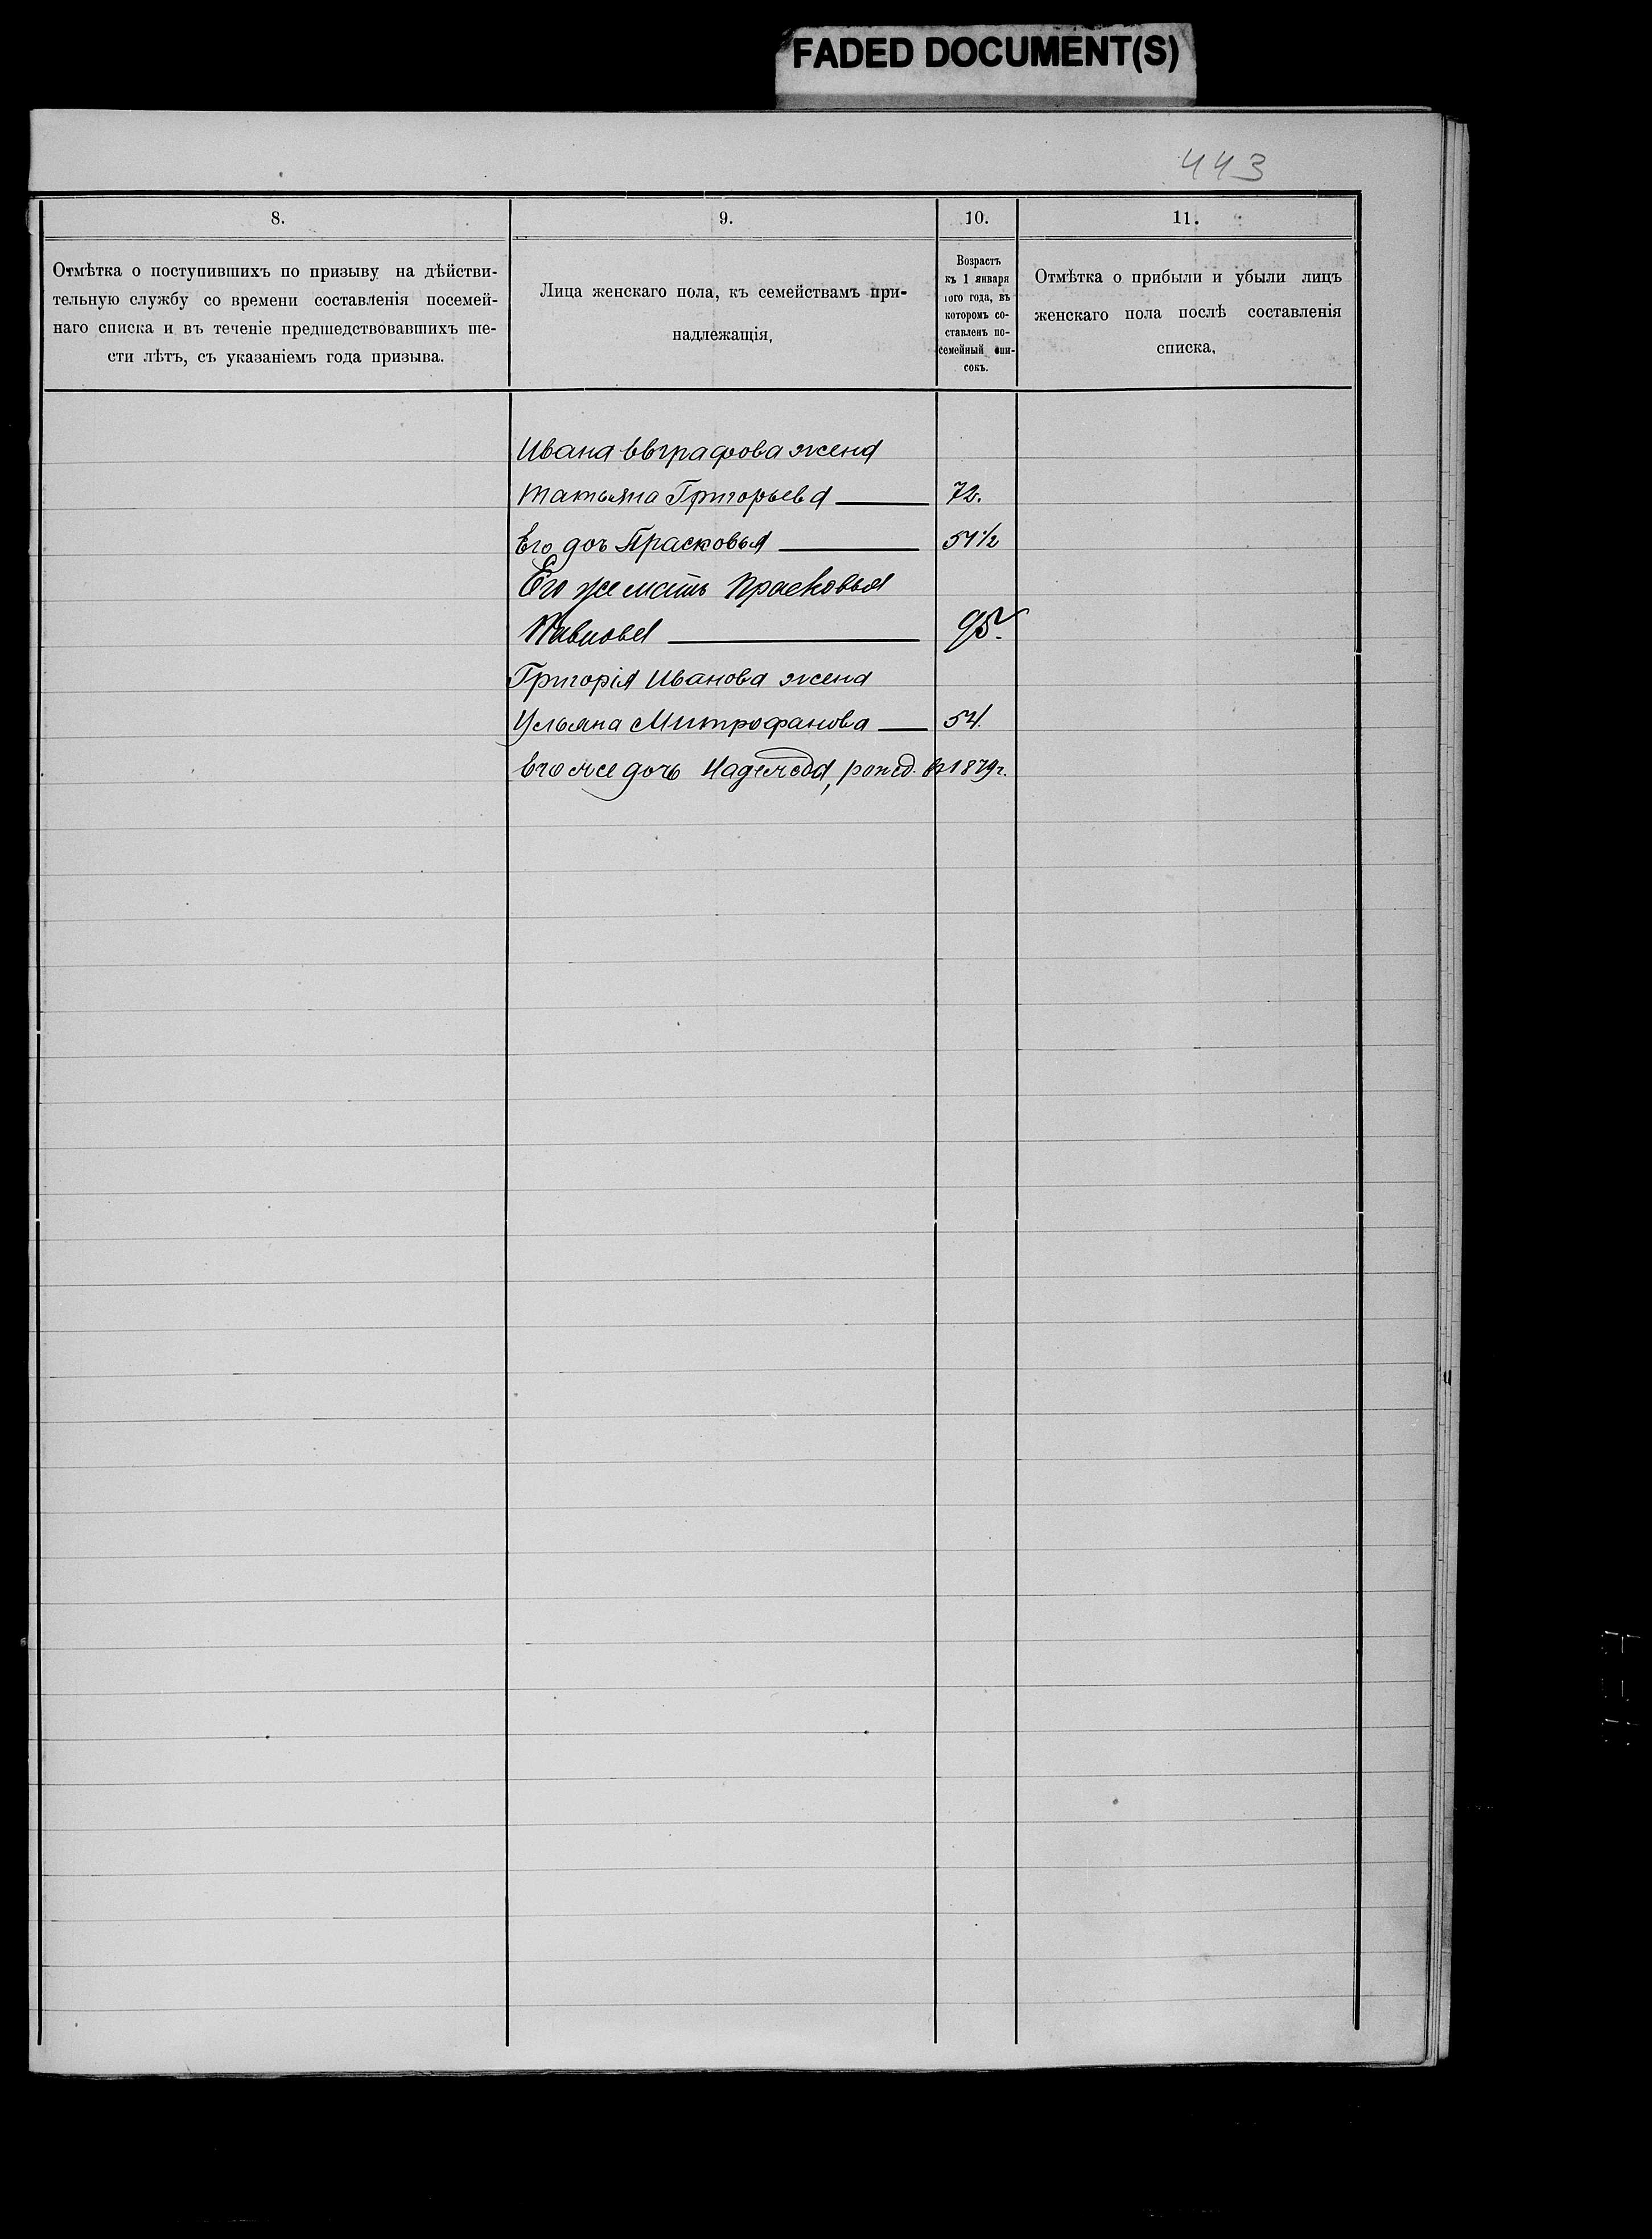 FADED DOCUMENT(S)
443
8.
9.
10.
11.
Отмѣтка о поступившихъ по призыву на дѣйстви-
тельную службу со времени составленія посемей-
наго списка и въ теченіе предшедствовавшихъ ше-
сти лѣтъ, съ указаніемъ года призыва.
Лица женскаго пола, къ семействамъ при-
надлежащія,
Возрастъ
къ 1 января
того года, въ
которомъ со-
ставленъ по-
семейный спи-
сокъ.
Отмѣтка о прибыли и убыли лицъ
женскаго пола послѣ составленія
списка,
Ивана Евграфова жена
Татьяна Григорьева — 72.
Его доч Прасковья — 51 1/2
Его же мать Прасковья
Павлова — 95.
Григорія Иванова жена
Ульяна Митрофанова — 54
Его же дочь Надежда, рожд. въ 1879 г.